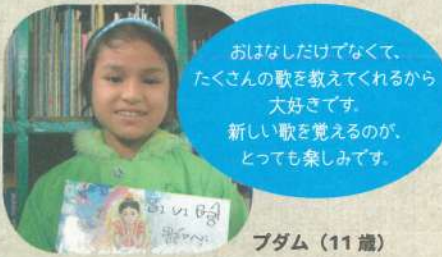 おはなしだけでなくて、
たくさんの歌を教えてくれるから
大好きです。
新しい歌を覚えるのが、
とっても楽しみです。
プダム（11歳）